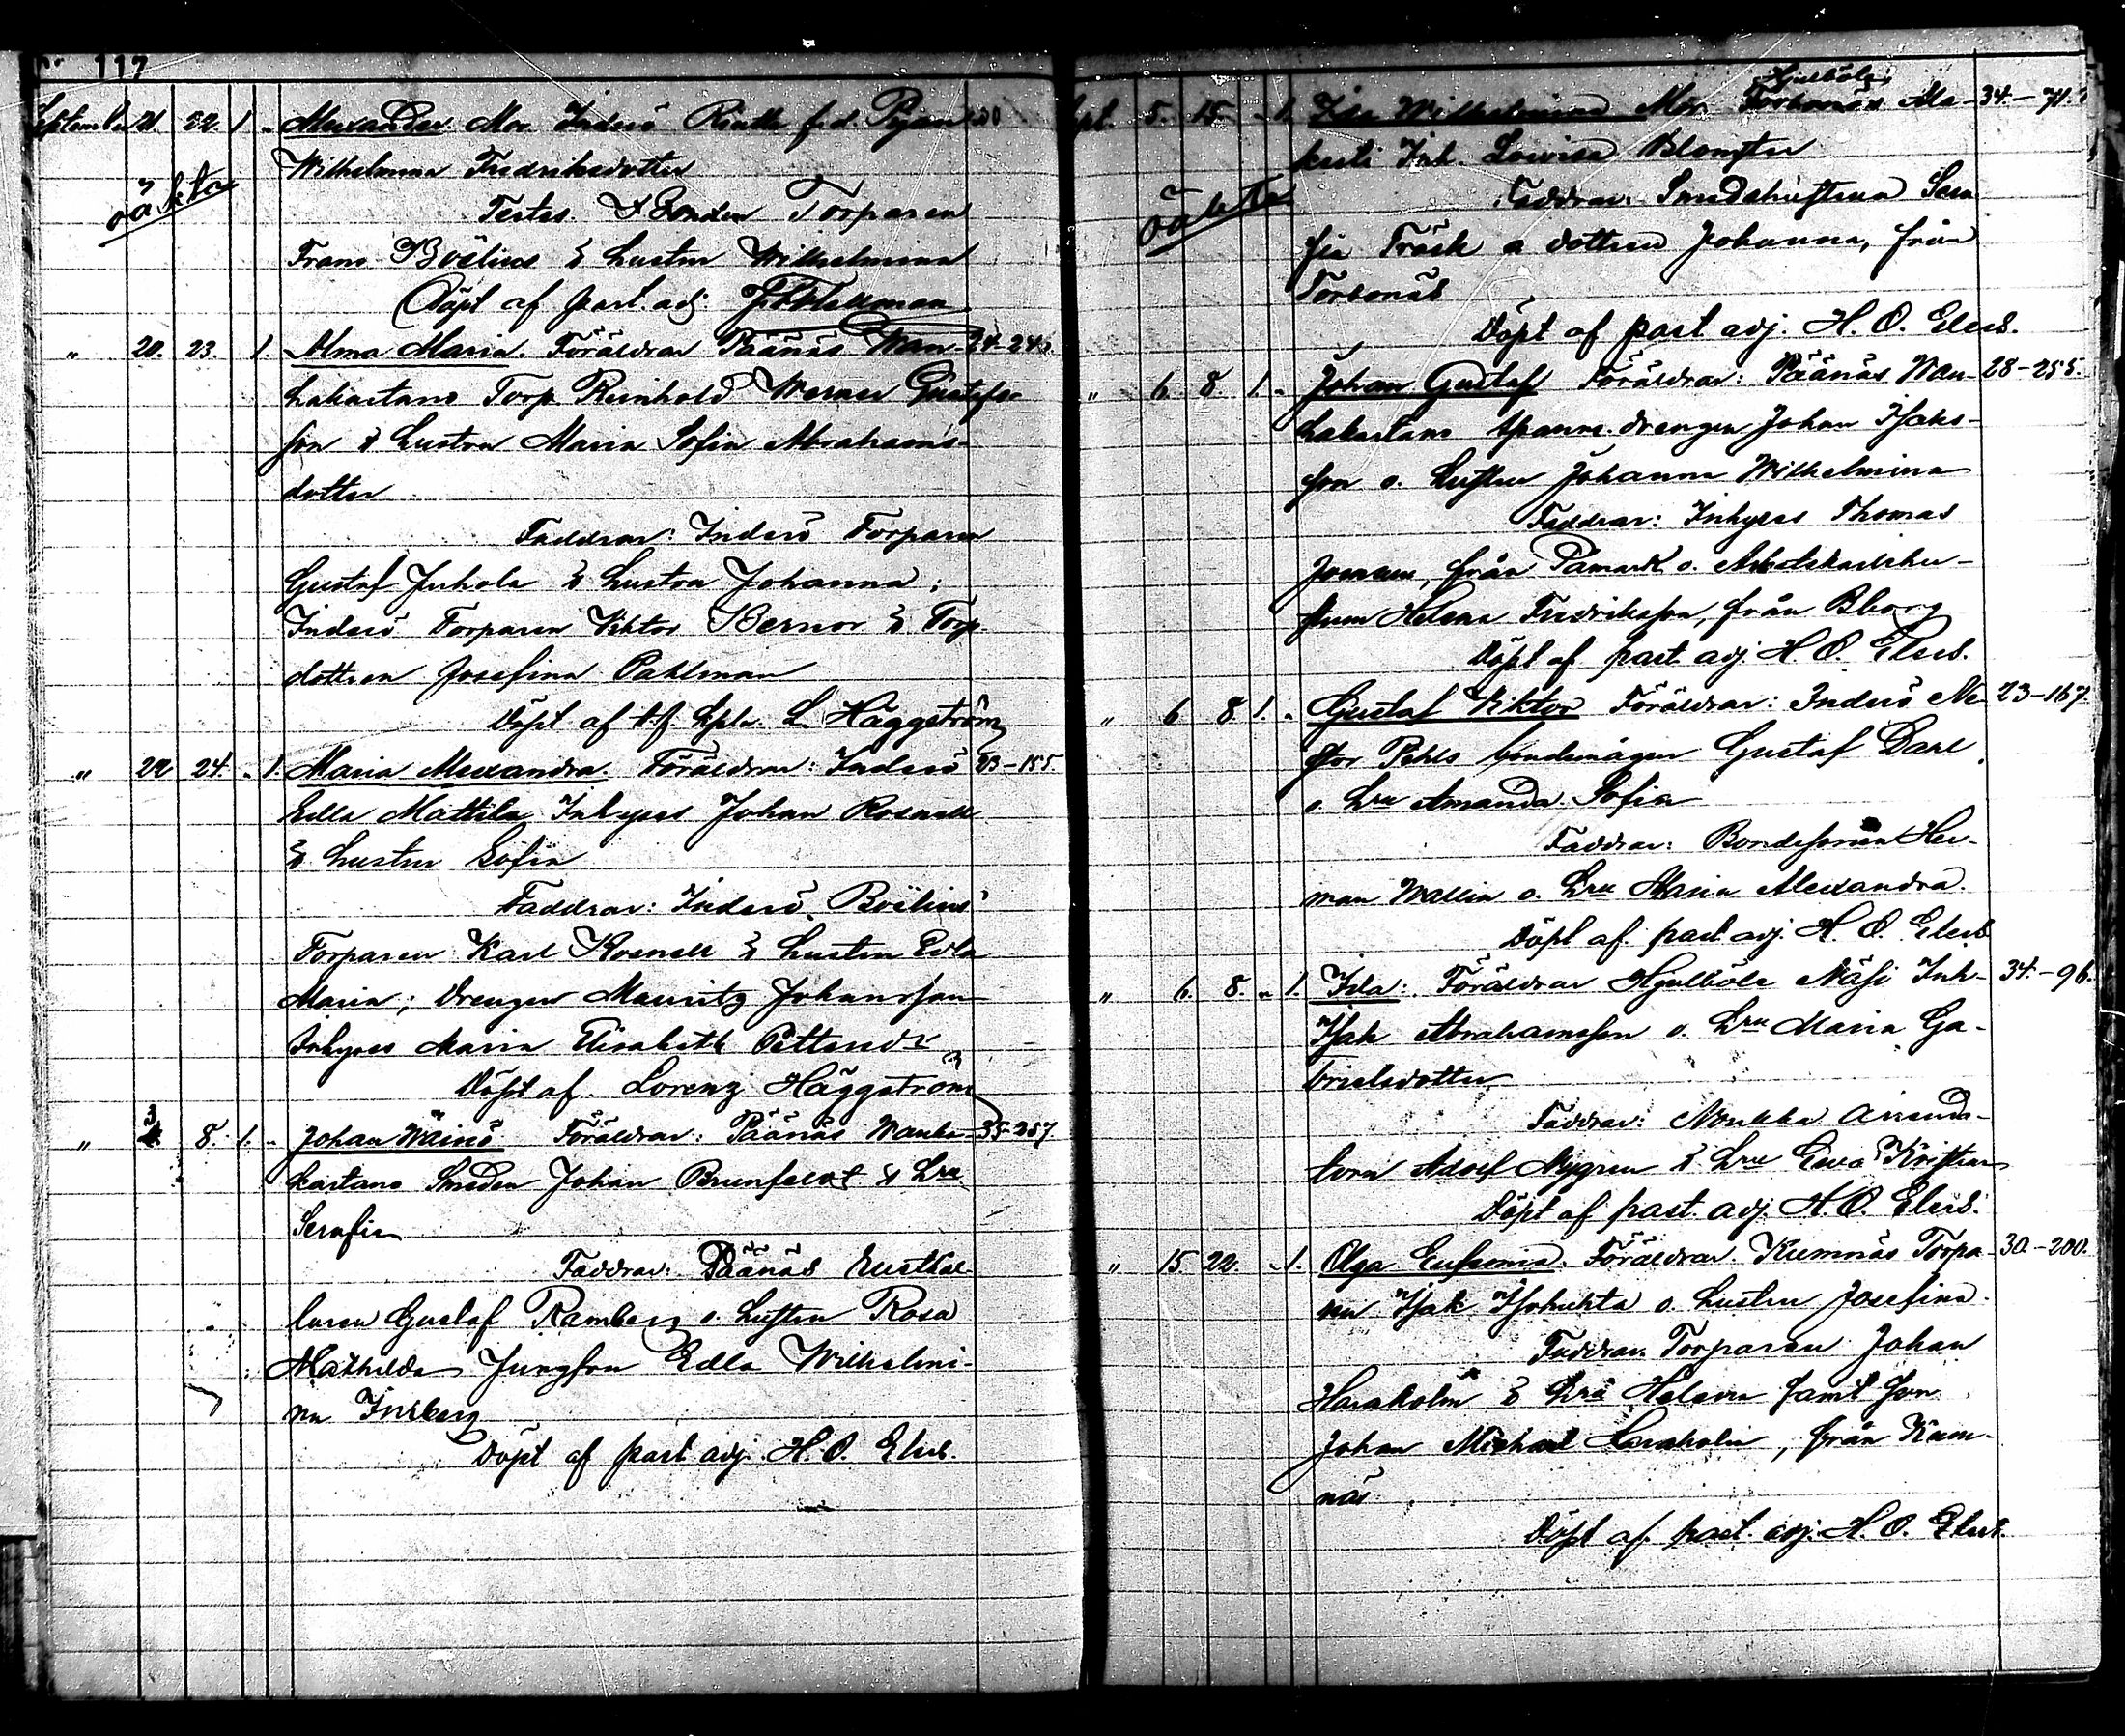 117
September 21. 22. 1 " Alexander Mor. Inderö Rintte f.d. Pigan 230
oäkta
Wilhelmina Fredriksdotter
Testes Torparen
Frans Boëlius & hustru Wilhelmina
Döpt af past. adj.
" 20. 23. 1. Alma Maria. Föräldrar Påänäs Wan- 24-240.
hakartano Torp. Reinhold Werner Gustafs-
son & hustru Maria Sofia Abrahams-
dotter
Faddrar: Inderö Torparen
Gustaf Juhola & hustru Johanna;
Inderö Torparen Viktor Bernor & Torp.
dottren Josefina Pahlman
Döpt af L. Häggström
" 22 24. " 1. Maria Alexandra. Föräldrar: Inderö 23-185.
Edla Mattila Inhyses Johan Rosnell
& hustru Sofia
Faddrar: Inderö, Boëlius
Torparen Karl Rosnell & hustru Edla
Maria; Drengen Mauritz Johansson
Inhyses Maria Elisabeth
Döpt af. Lorenz Häggström
" 3 8. 1. " Johan Wäinö Föräldrar: Påänäs Wanha- 35-257.
kartano Smeden Johan Brunfeldt & Hru
Serafia
Faddrar: Påänäs
Gustaf Ramberg o. hustru Rosa
Mathilda Jungfru Edla Wilhelmi-
na Inberg
Döpt af past. adj. H. O. Elers.
Sept. 5. 15 " 1. Ida Wilhelmina Mor. Hjulböle, Torbonäs Ala- 34.-71.
oäkta
kerli Inh. Lovisa Blomster
Faddrar: Smedshustrun Sera-
fia Träsk o dottren Johanna, från
Torbonäs
Döpt af past adj. H. O. Elers.
" 6 8. 1. " Johan Gustaf Föräldrar: Påänäs Wan- 28-255.
hakartano drengen Johan Isaks-
son o. hustru Johanna Wilhelmina
Faddrar: Inhyses Thomas
från Påmark o. Arbetskarlshu-
strun Helena Fredriksson, från Bborg
Döpt af past adj. H. O. Elers.
" 6 8 1. " Gustaf Viktor Föräldrar: Inderö Ne- 23-167.
stor Pehls bondemågen Gustaf Dahl
o. Hru Amanda Sofia
Faddrar: Bondesonen Her-
man Wallin o. Hru Maria Alexandra.
Döpt af past adj. H. O. Elers
" 6. 8. " 1. Ida: Föräldrar Hjulböle Näsi Inh- 34.-96.
Isak Abrahamsson o. Hru Maria Ga-
brielsdotter
Faddrar: Arrenda-
torn Adolf Nygren & Hru Eva Kristina
Döpt af past. adj. H. O. Elers.
" 15. 22. " 1. Olga Eufemia. Föräldrar. Kumnäs Torpa- 30.-200.
ren Isak Isohuhta o. hustru Josefina.
Faddrar. Torparen Johan
Haraholm & Hru Helena samt son
Johan Michael Haraholm, från Kum-
näs
Döpt af past. adj. H. O. Elers.